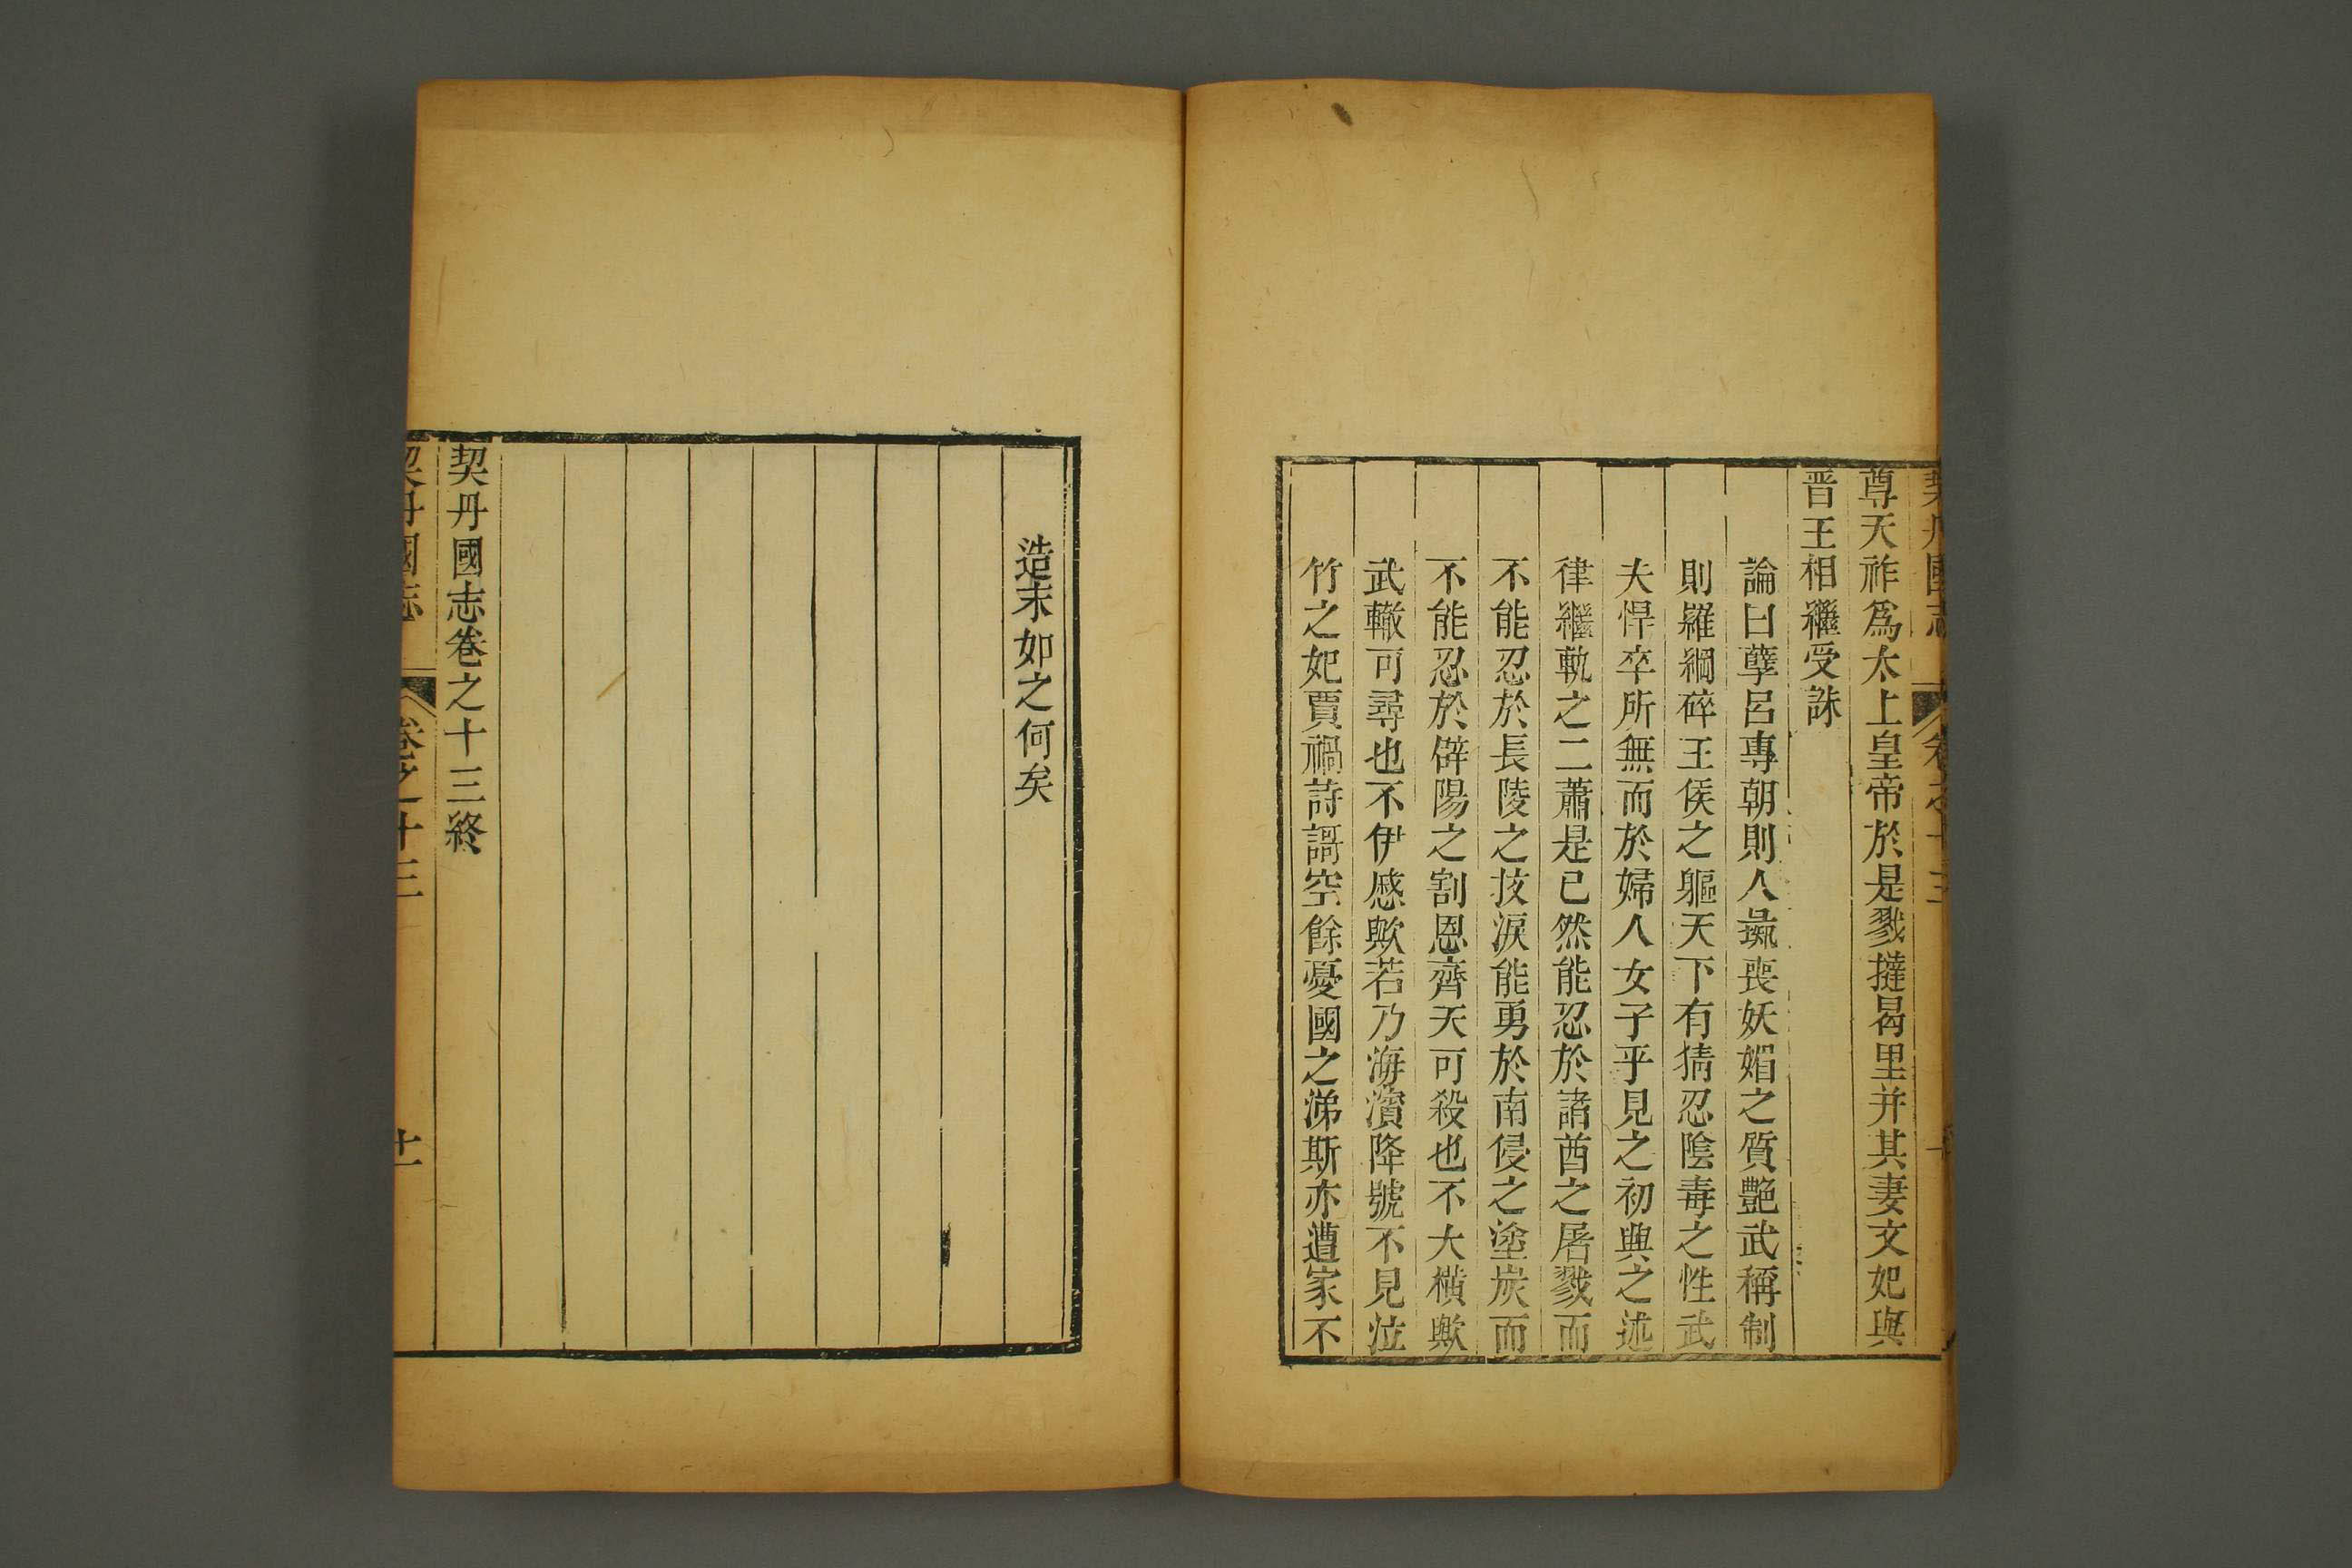 契丹國志 卷之十三
尊天祚爲太上皇帝於是戮撻曷里并其妻文妃與
晋王相繼受誅
論曰孽呂專朝則人彘喪妖媚之質艶武稱制
則羅綱碎王侯之軀天下有猜忍陰毒之性武
夫悍卒所無而於婦人女子乎見之初興之述
律繼軌之二蕭是已然能忍於諸酋之屠戮而
不能忍於長陵之抆淚能勇於南侵之塗炭而
不能忍於僻陽之割恩齊天可殺也不大橫歟
武轍可尋也不伊慼歟若乃海濱降號不見泣
竹之妃賈禍詩謌空餘憂國之涕斯亦遭家不
造末如之何矣
契丹國志卷之十三終
契丹國志 卷之十三 十一